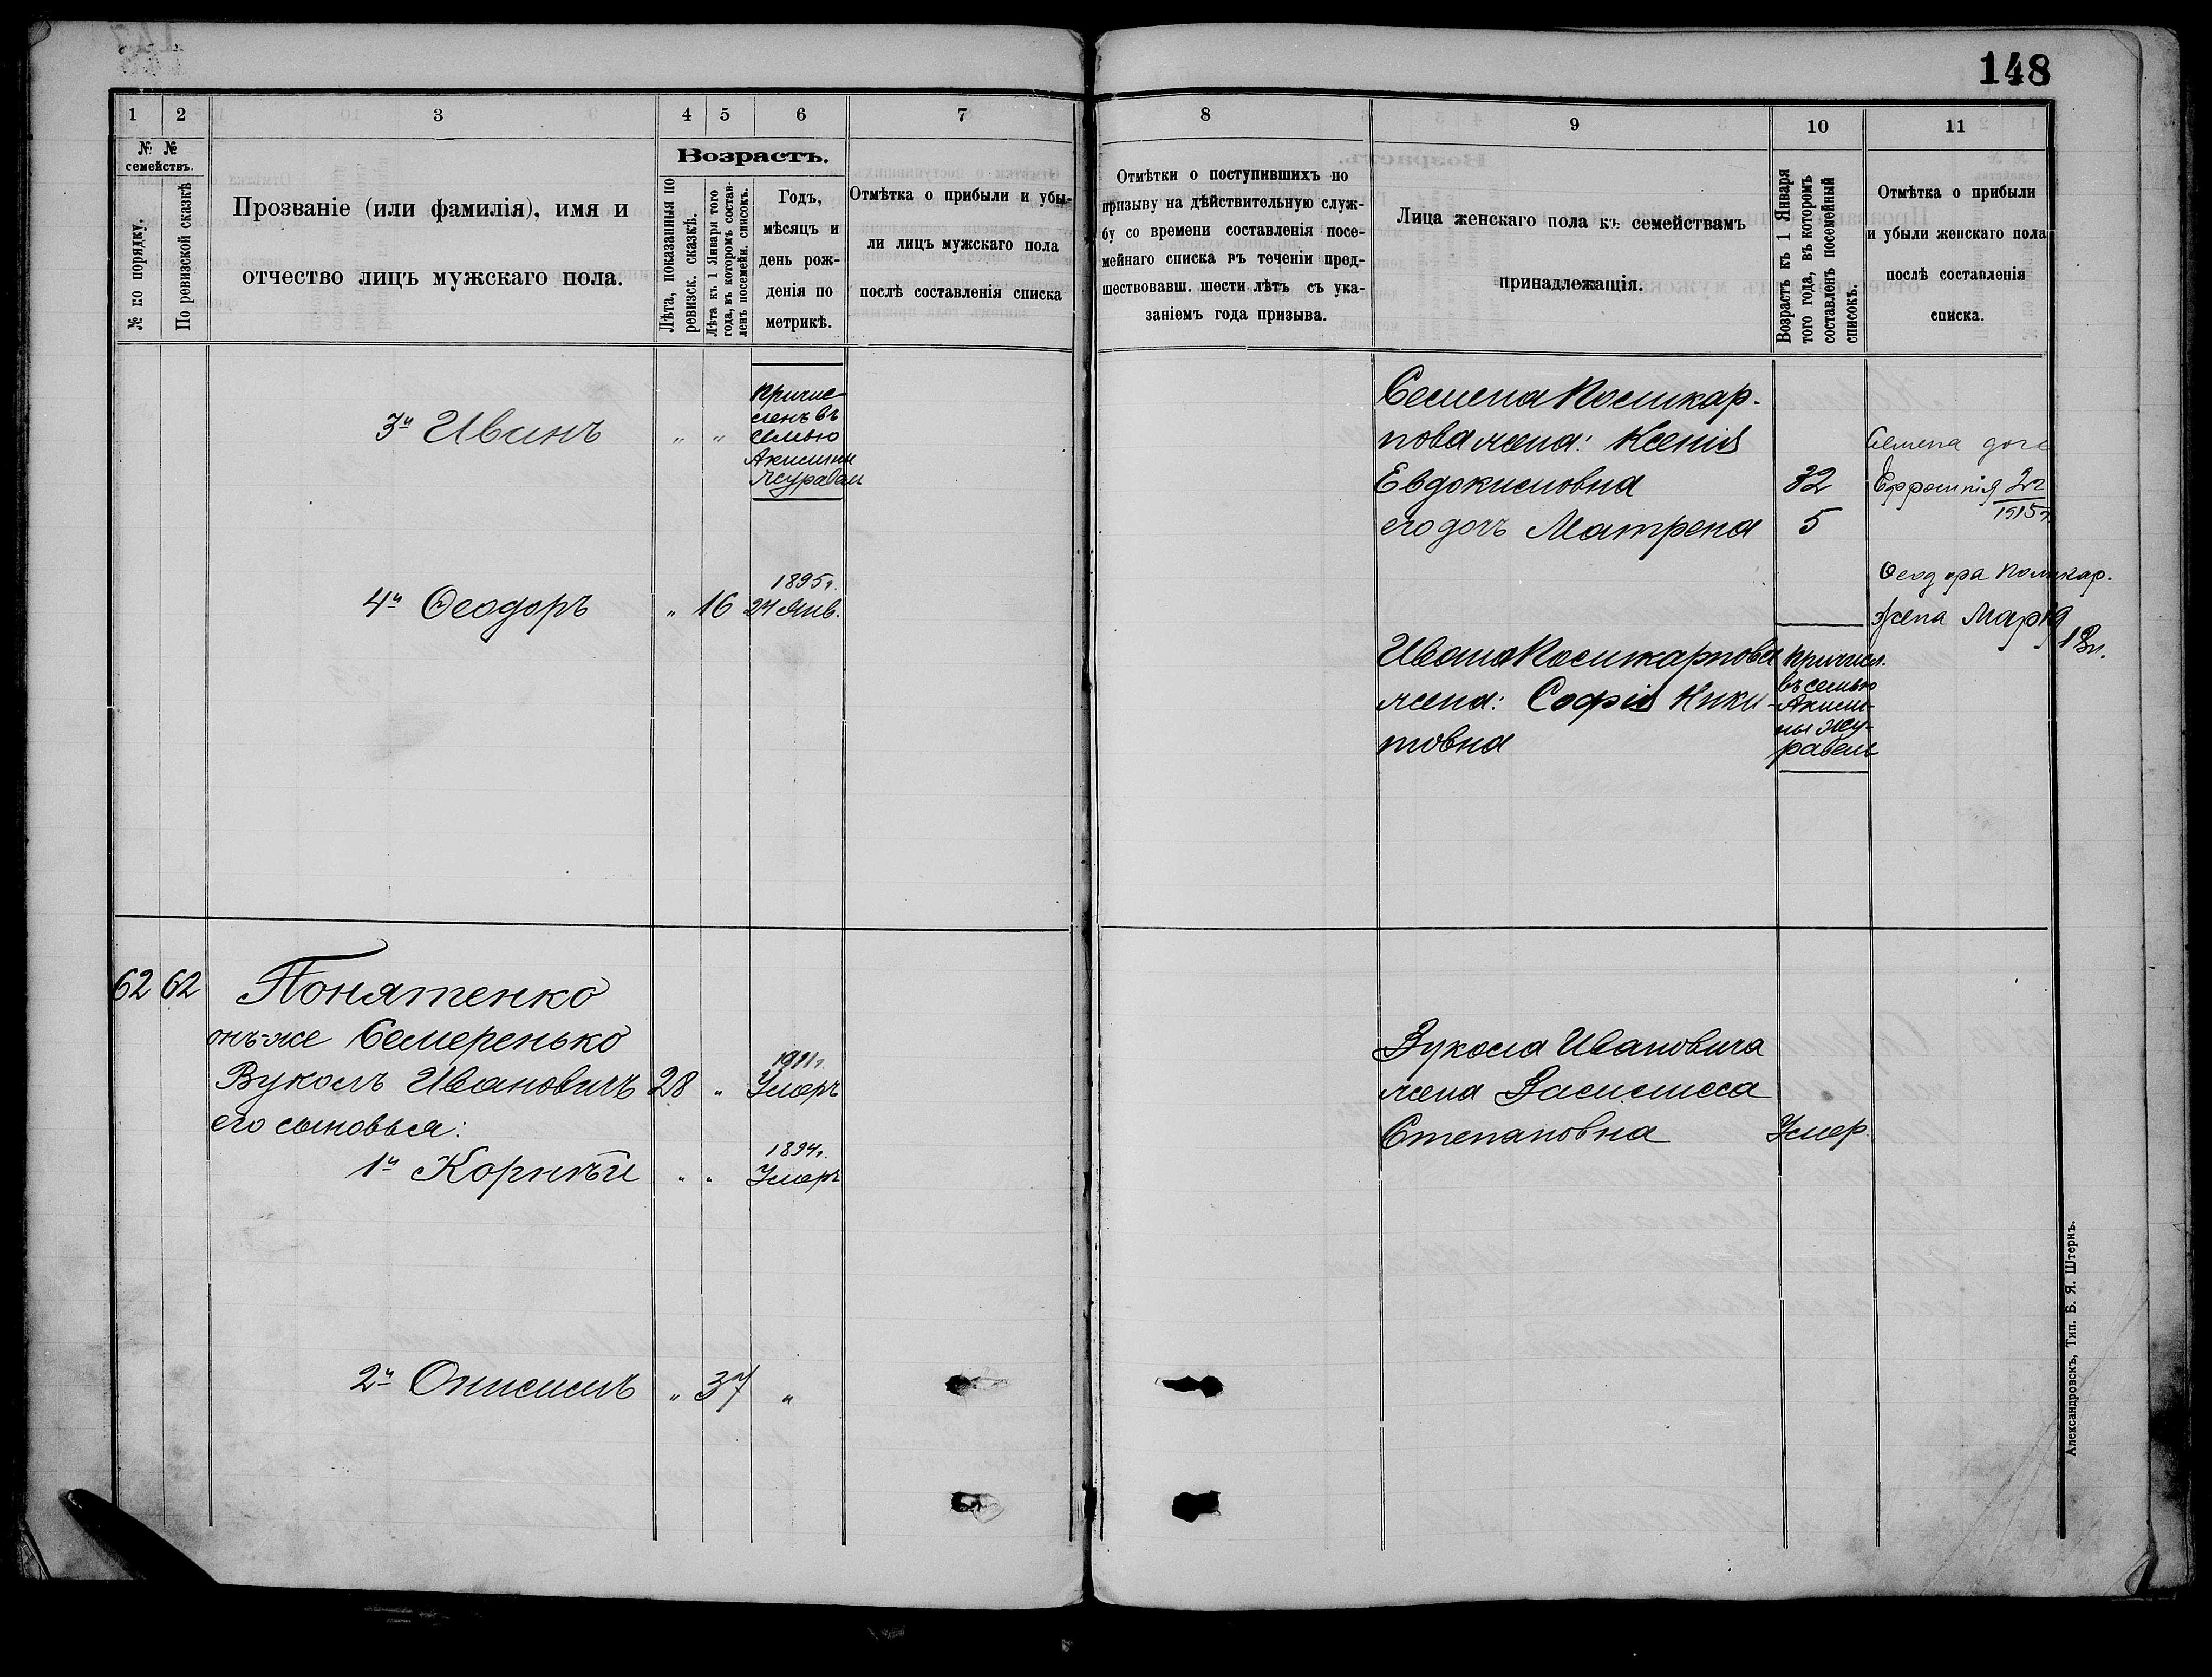 148
1 2 3 4 5 6 7
№ №
семействъ.
№ по порядку.
По ревизской сказкѣ
Прозваніе (или фамилія), имя и
отчество лицъ мужскаго пола.
Возрастъ.
Лѣта, показанныя по
ревизск. сказкѣ.
Лѣта къ 1 Января того
года, въ которомъ состав-
ленъ посемейн. списокъ.
Годъ,
мѣсяцъ и
день рож-
денія по
метрикѣ.
Отмѣтка о прибыли и убы-
ли лицъ мужскаго пола
послѣ составленія списка
3й Иванъ " "
Причис
ленъ въ
семью
Акилины
Журавли
1895г.
4й Ѳеодоръ " 16 24 Янв.
62 62 Понятенко
онъ-же Семеренько
1911г.
Вуколъ Ивановичъ 28 " Умеръ
его сыновья:
1894г.
1й Корнѣй " " Умеръ
2й Онисимъ " 37 "
8 9 10 11
Отмѣтки о поступившихъ по
призыву на дѣйствительную служ-
бу со времени составленія посе-
мейнаго списка въ теченіи пред-
шествовавш. шести лѣтъ съ ука-
заніемъ года призыва.
Лица женскаго пола къ семействамъ
принадлежащія.
Возрастъ къ 1 Января
того года, въ которомъ
составленъ посемейный
списокъ.
Отмѣтка о прибыли
и убыли женскаго пола
послѣ составленія
списка.
Семена Поликар-
пова жена: Ксенія
Евдокимовна 32
его дочь Матрена 5
Семена доче
Ефросинія 2г
1915г
Ѳеодора Поликар.
жена Марія
18л.
Ивана Поликарпова
жена: Софія Ники-
товна
Причисл.
въ семью
Акили-
ны Жу-
равель
Вукола Ивановича
жена Василиса
Степановна Умер.
Александровскъ, Тип. Б. Я. Штернъ.